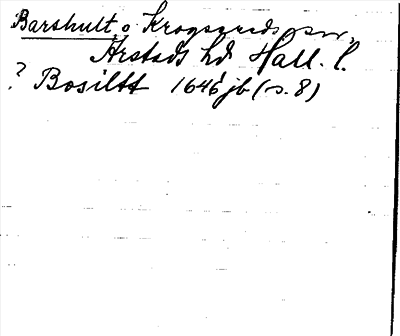 Barshult o. Krogsereds sn,
Årstads hd Hall. l.
? Bosiltt 1646 jb (s. 8)